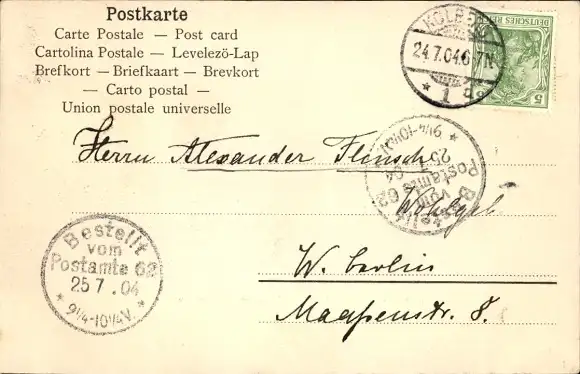 Postkarte
Carte Postale — Post card
Cartolina Postale — Levelezö-Lap
Brefkort — Briefkaart — Brevkort
— Carto postal —
Union postale universelle
KOLBERG
24.7.04.6-7N.
* 1 a
DEUTSCHES REICH
5 5
Herrn Alexander Flinsch
Bestellt
vom
Postamte 62
25 7. 04
* 9¼-10¼V. *
Wohlgeb.
Bestellt
vom
Postamte 62
25 7. 04
* 9¼-10¼V. *
W. Berlin
Maaßenstr. 8.